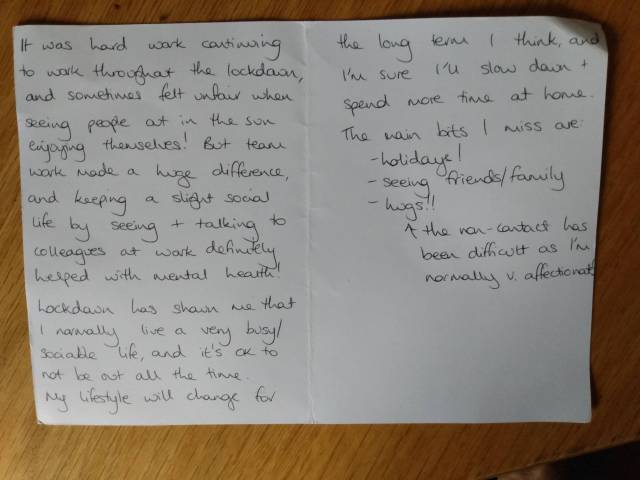 It was hard work continuing
to work throughout the lockdown,
and sometimes felt unfair when
seeing people out in the sun
enjoying themselves! But team
work made a huge difference,
and keeping a slight social
life by seeing + talking to
colleagues at work definitely
helped with mental health!
Lockdown has shown me that
I normally live a very busy/
sociable life, and it's ok to
not be out all the time.
My lifestyle will change for
the long term I think, and
I'm sure I'll slow down +
spend more time at home.
The main bits I miss are:
- holidays!
- seeing friends/family
- hugs!!
↑ the non-contact has
been difficult as I'm
normally v. affectionate